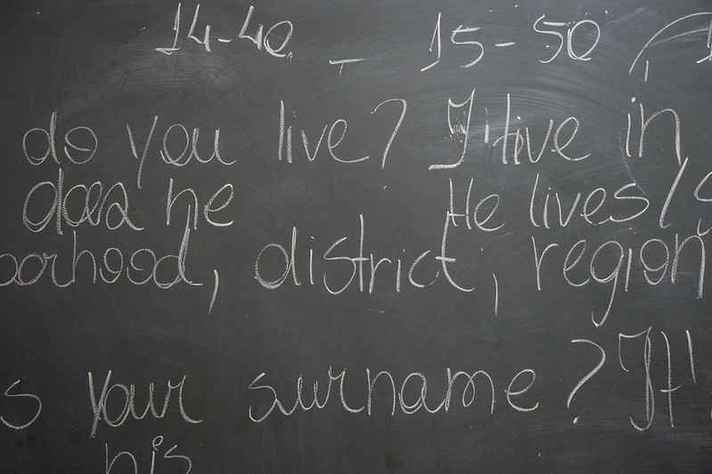 14-40 – 15-50
do you live? I live in
does he He lives/
orhood, district, region
s your surname? It'
his